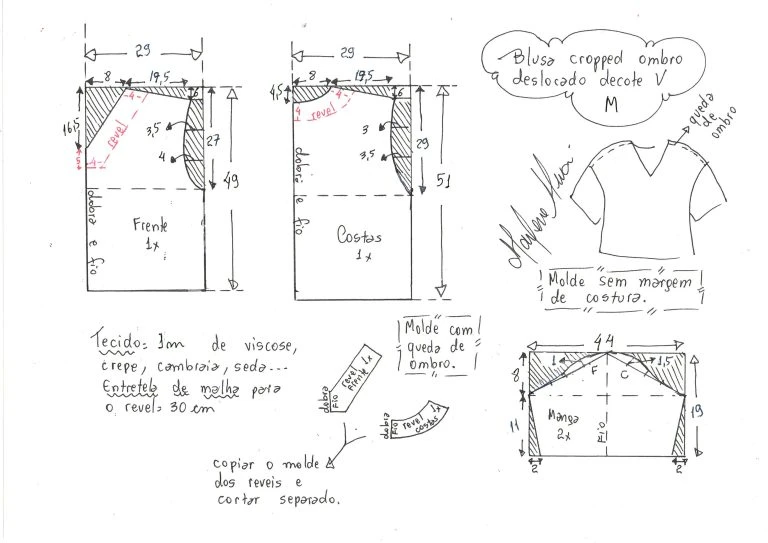 29
8
19,5
6
16,5
4
revel
4
5
3,5
4
27
49
dobra e fio
Frente
1x
29
8
19,5
6
4,5
4
4
revel
3
3,5
29
51
dobra e fio
Costas
1x
Blusa cropped ombro
deslocado decote V
M
queda
de
ombro
Molde sem margem
de costura.
Tecido: 1m de viscose,
crepe, cambraia, seda...
Entretela de malha para
o revel: 30 cm
Molde com
queda de
ombro.
dobra
fio
revel
frente
1x
dobra
fio
revel
costas
1x
copiar o molde
dos reveis e
cortar separado.
44
1
F
C
1,5
8
11
19
Manga
2x
Fio
2
2